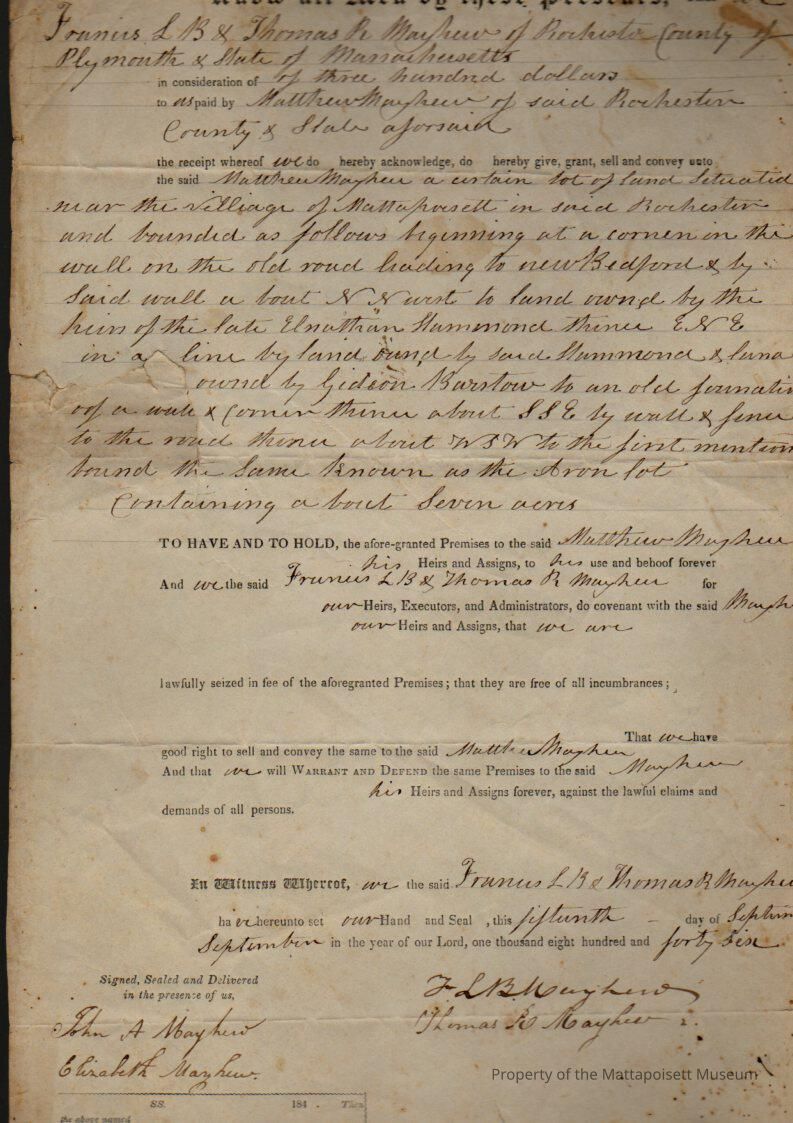 Know all Men by these Presents,
Francis L B & Thomas R Mayhew of Rochester County of
Plymouth & State of Massachusetts
in consideration of of three hundred dollars
to us paid by Matthew Mayhew of said Rochester
County & State aforsaid
the receipt whereof we do hereby acknowledge, do hereby give, grant, sell and convey unto
the said Matthew Mayhew a certain lot of land Situated
near the villiage of Mattapoisett in said Rochester
and bounded as follows beginning at a corner in the
wall on the old road leading to new Bedford & by
Said wall a bout N N west to land owned by the
heirs of the late Elnathan Hammond thence E N E
in a line by land ownd by said Hammond & land
owned by Gideon Barstow to an old foundati
oof a wall & Corner thence about S S E by wall & fence
to the road thence about W S W to the first mention
bound the Same known as the Aron lot
Containing a bout Seven acres
TO HAVE AND TO HOLD, the afore-granted Premises to the said Matthew Mayhew
his Heirs and Assigns, to his use and behoof forever
And we the said Francis L B & Thomas R Mayhew for
our Heirs, Executors, and Administrators, do covenant with the said Mayh
our Heirs and Assigns, that we are
lawfully seized in fee of the aforegranted Premises; that they are free of all incumbrances;
That we have
good right to sell and convey the same to the said Matthew Mayhew
And that we will WARRANT AND DEFEND the same Premises to the said Mayhew
his Heirs and Assigns forever, against the lawful claims and
demands of all persons.
In Witness Whereof, we the said Francis L B & Thomas R Mayhew
ha ve hereunto set our Hand and Seal , this fifteenth - day of Septem
September in the year of our Lord, one thousand eight hundred and forty six
Signed, Sealed and Delivered
in the presence of us,
F L B Mayhew
Thomas R Mayhew
John A Mayhew
Elizabeth Mayhew.
Property of the Mattapoisett Museum
SS. 184 . Then
the above named